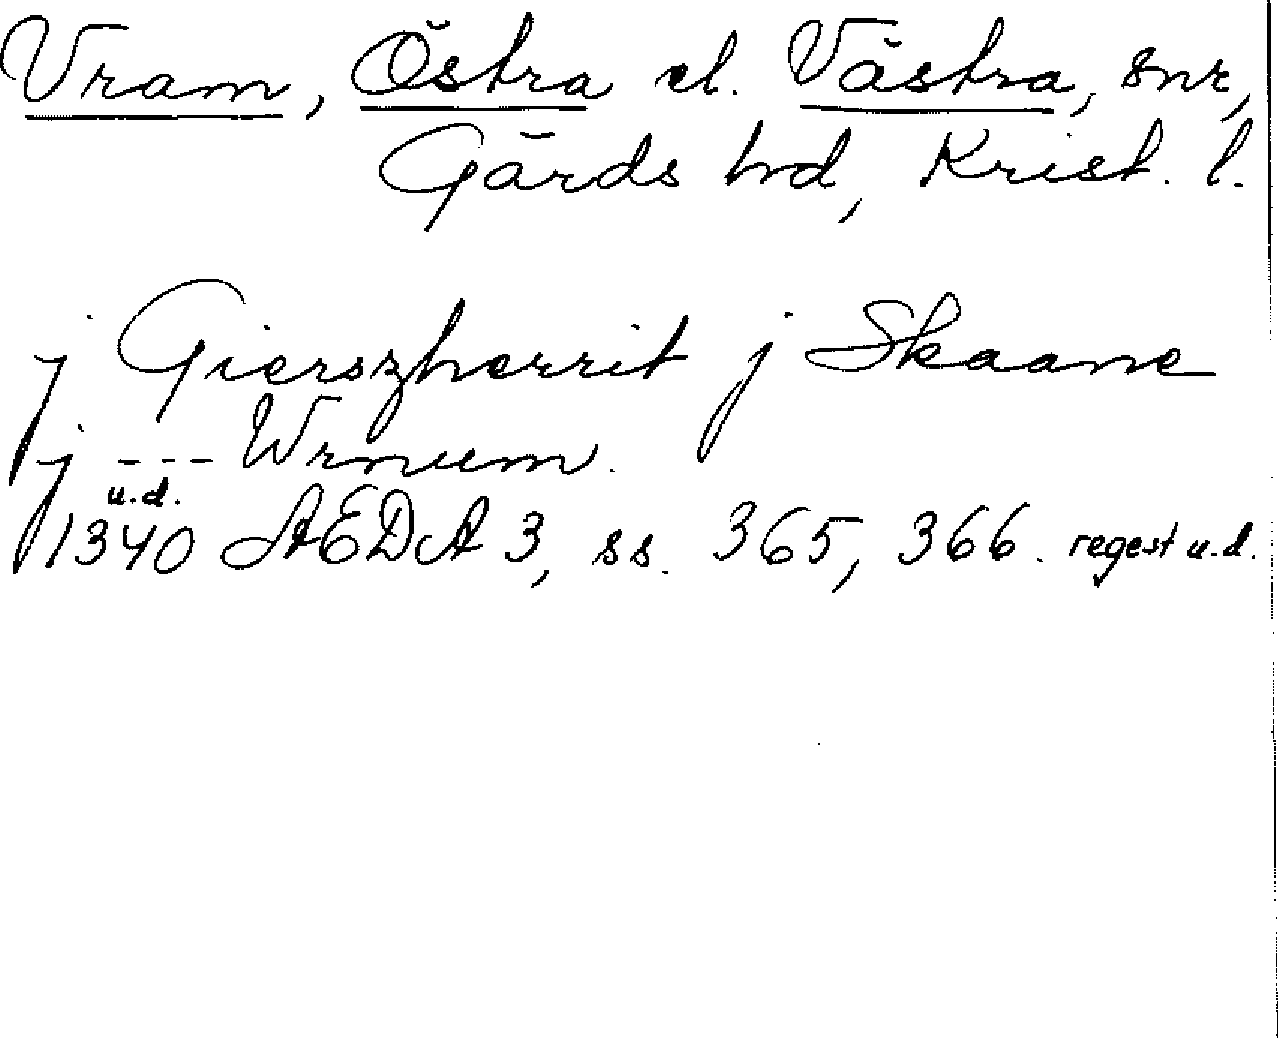 Vram, Östra el. Västra, snr,
Gärds hd, Krist. l.
j Gierszherrit j Skaane
j --- Wrnum.
u.d.
1340 AEDA 3, ss. 365, 366. regest u.d.